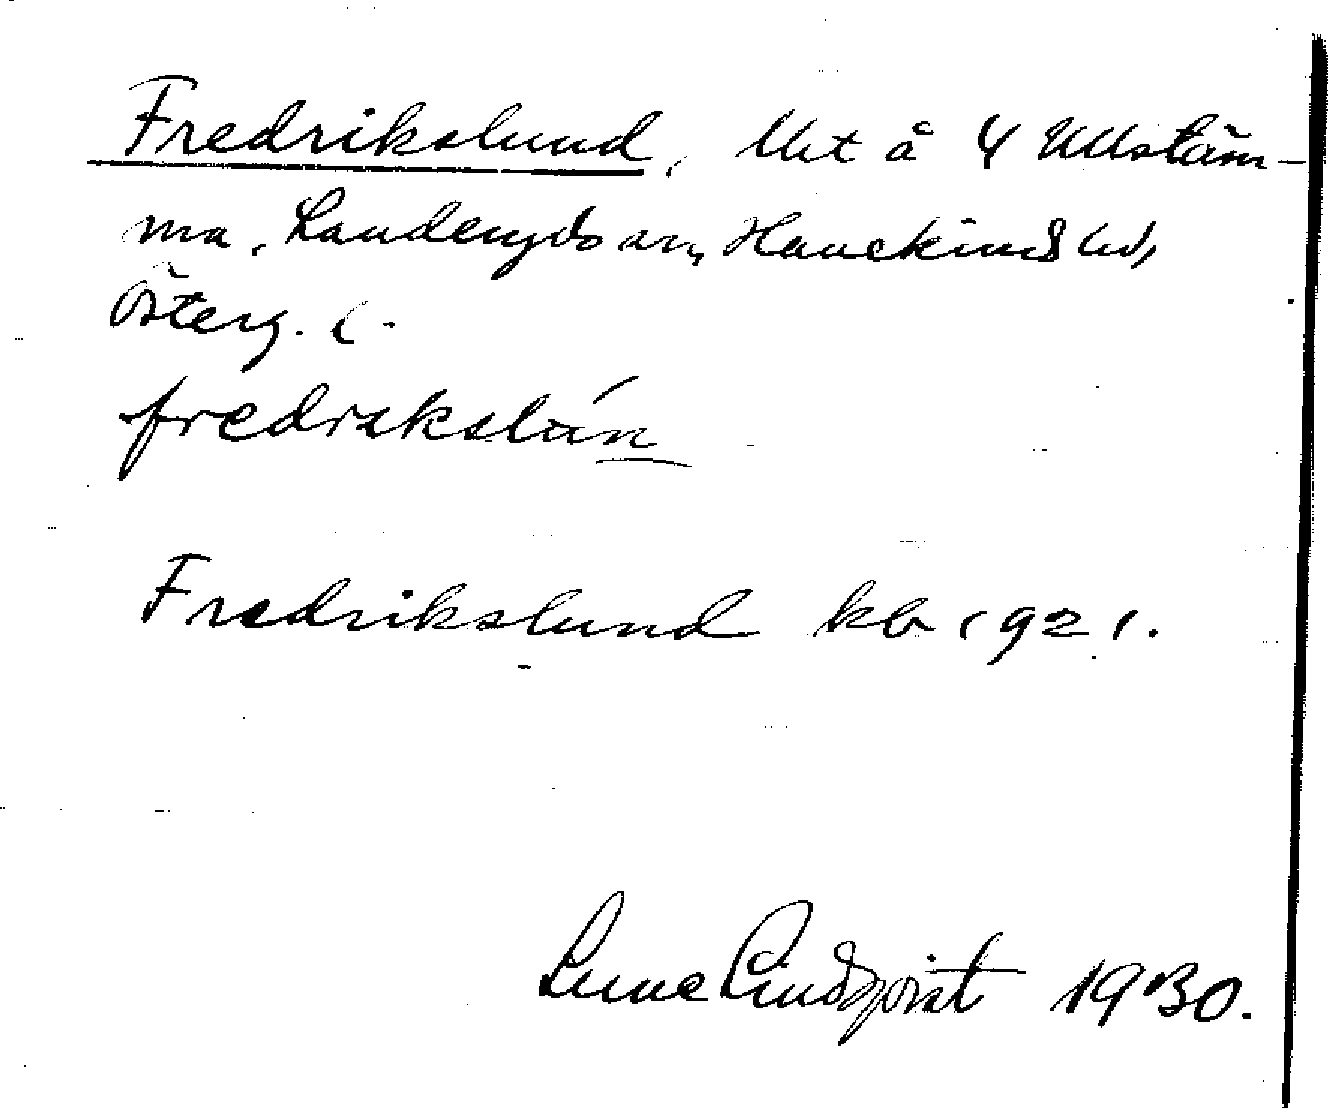 Fredrikslund, lht å 4 Ullstäm-
ma, Landeryds sn, Hanekinds hd,
Österg. l.
fredrɩkslún
Fredrikslund kb 1921.
Sune Lindqvist 1930.